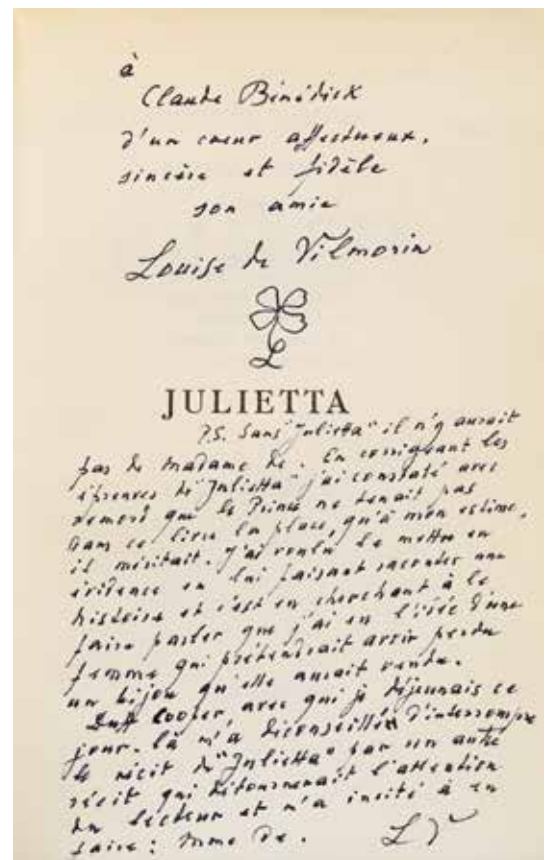 à
Claude Bénédick
d'un cœur affectueux,
sincère et fidèle
son amie
Louise de Vilmorin
L
JULIETTA
P.S. Sans "Julietta" il n'y aurait
pas de Madame de. En corrigeant les
épreuves de "Julietta" j'ai constaté avec
remord que le Prince ne tenait pas
dans ce livre la place, qu'à mon estime,
il méritait. J'ai voulu le mettre en
évidence en lui faisant raconter une
histoire et c'est en cherchant à le
faire parler que j'ai eu l'idée d'une
femme qui prétendrait avoir perdu
un bijou qu'elle aurait vendu.
Duff Cooper, avec qui je déjeunais ce
jour-là m'a déconseillé d'interrompre
le récit de "Julietta" par un autre
récit qui détournerait l'attention
du lecteur et m'a incité à en
faire : Mme de. L V